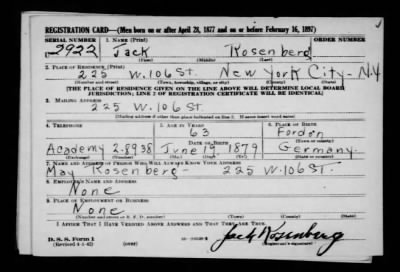 REGISTRATION CARD—(Men born on or after April 28, 1877 and on or before February 16, 1897)
SERIAL NUMBER 1. NAME (Print) ORDER NUMBER
2922 Jack Rosenberg
(First) (Middle) (Last)
2. PLACE OF RESIDENCE (Print)
225 W. 106 St. New York City - N.Y
(Number and street) (Town, township, village, or city) (County) (State)
[THE PLACE OF RESIDENCE GIVEN ON THE LINE ABOVE WILL DETERMINE LOCAL BOARD
JURISDICTION; LINE 2 OF REGISTRATION CERTIFICATE WILL BE IDENTICAL]
3. MAILING ADDRESS
225 W. 106 St.
[Mailing address if other than place indicated on line 2. If same insert word same]
4. TELEPHONE 5. AGE IN YEARS 6. PLACE OF BIRTH
63 Fordon
DATE OF BIRTH (Town or county)
Academy 2-8938 June 19 1879 Germany
(Exchange) (Number) (Mo.) (Day) (Yr.) (State or country)
7. NAME AND ADDRESS OF PERSON WHO WILL ALWAYS KNOW YOUR ADDRESS
May Rosenberg - 225 W. 106 St.
8. EMPLOYER'S NAME AND ADDRESS
None
9. PLACE OF EMPLOYMENT OR BUSINESS
None
(Number and street or R. F. D. number) (Town) (County) (State)
I AFFIRM THAT I HAVE VERIFIED ABOVE ANSWERS AND THAT THEY ARE TRUE.
D. S. S. Form 1 Jack Rosenberg
(Revised 4-1-42) (over) (Registrant's signature)